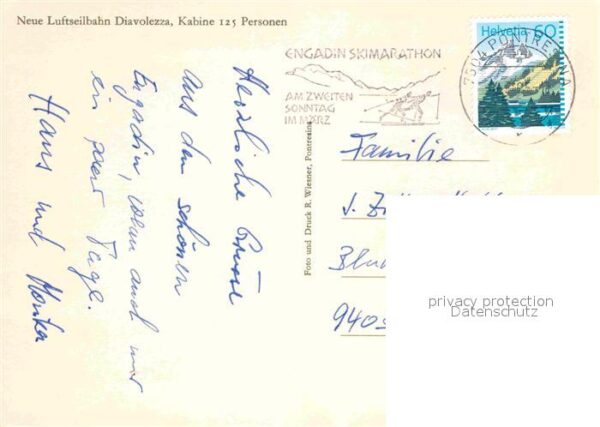 Neue Luftseilbahn Diavolezza, Kabine 125 Personen
Herzliche Grüsse
aus dem schönen
Engadin, wenn auch nur
ein paar Tage.
Hans und Monika
Foto und Druck R. Wiesner, Pontresina
ENGADIN SKIMARATHON
AM ZWEITEN
SONNTAG
IM MÄRZ
Helvetia 60
7504 PONTRESINA
Familie
J.
940
privacy protection
Datenschutz